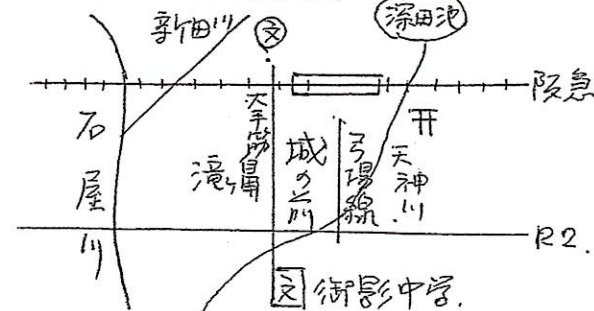 新田川
文
深田池
阪急
石屋川
大手筋
滝ヶ鼻
城の前
弓場線
天神川
R2.
文 御影中学.